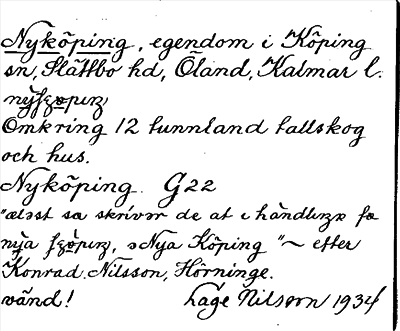 Nyköping, egendom i Köping
sn, Slättbo hd, Öland, Kalmar l.
Omkring 12 tunnland tallskog
och hus.
Nyköping G22
"ælɜst sa skrívɜr de at i hàndlıŋɜ fɷ
nỳa ʃɷ̀pıŋ, ɔ Nya Köping "~ efter
Konrad Nilsson, Hörninge.
vänd! Lage Nilsson 1934